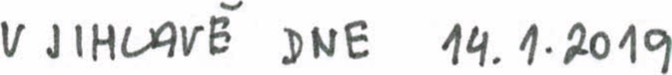 V JIHLAVĚ DNE 14.1.2019